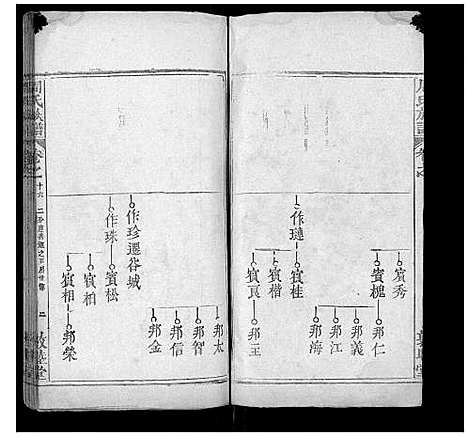 周氏族譜
卷之
賓秀
賓槐
邦仁
邦義
邦江
邦海
作璉
賓桂
賓楷
賓良
邦王
邦太
邦智
邦信
邦金
作珍遷谷城
作珠
賓松
賓柏
賓相
邦榮
周氏族譜
卷之
十六
二
敦
堂